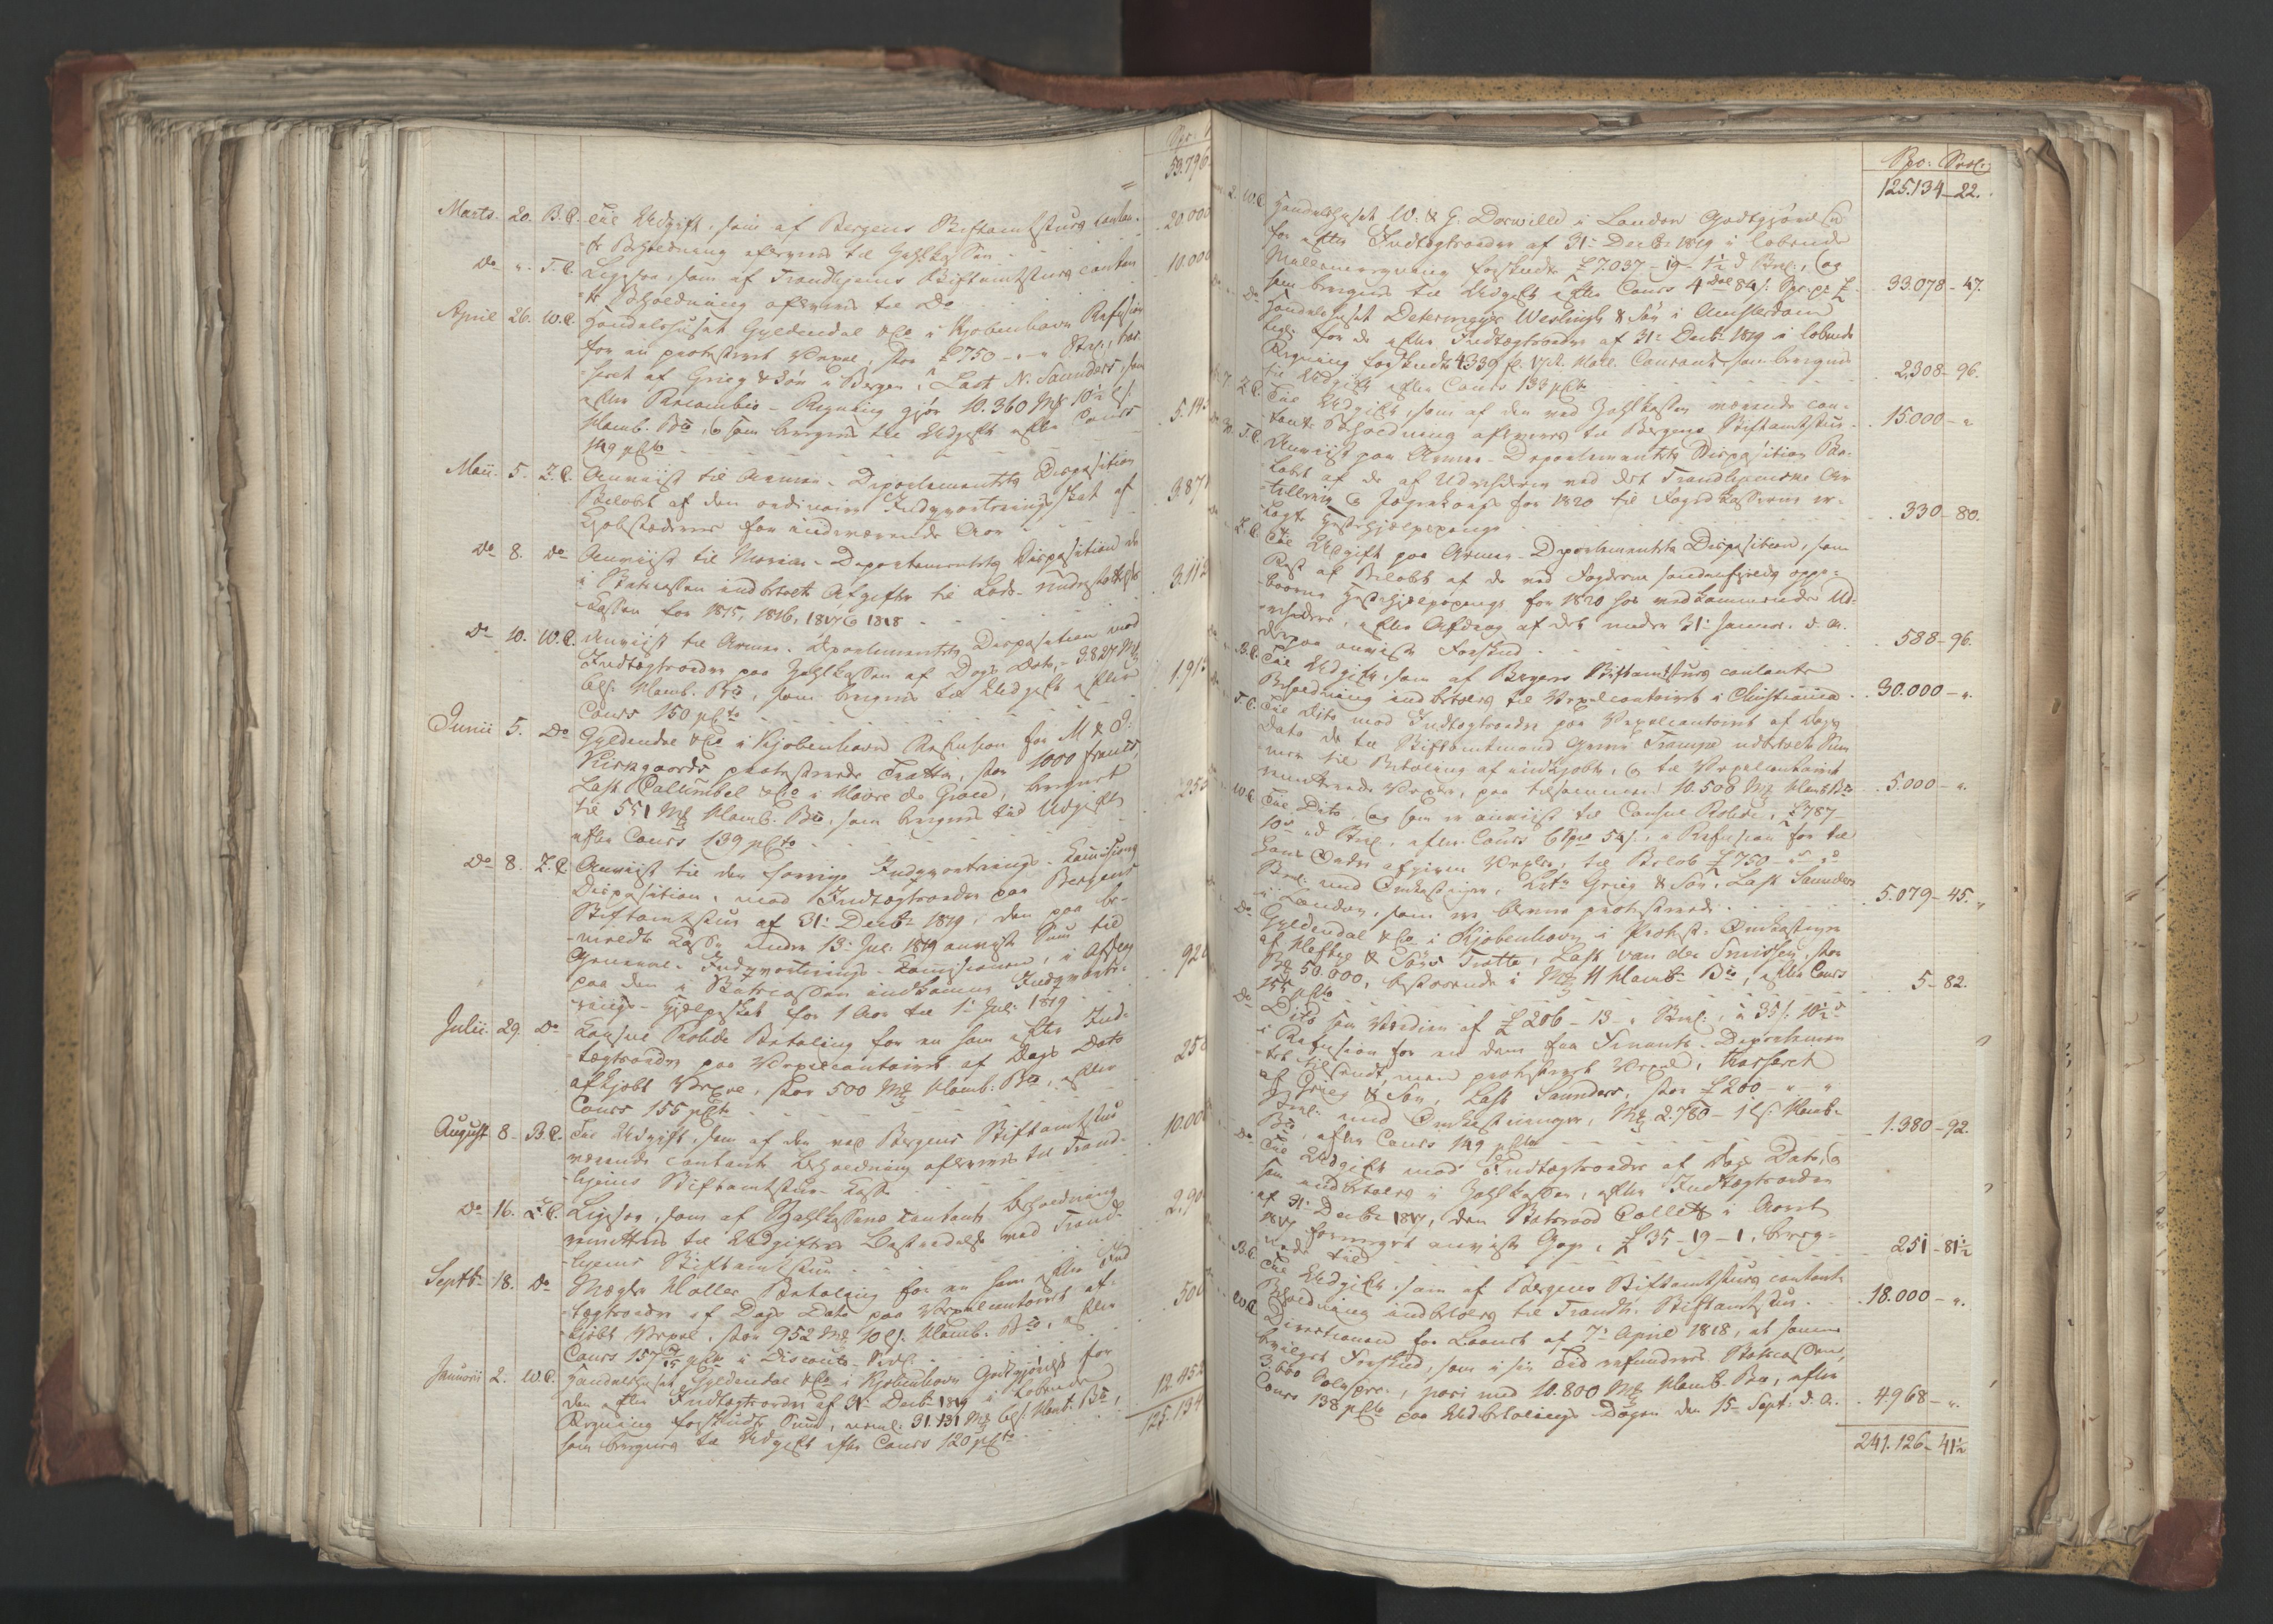 Spr.
53.796
Marts. 20. B.C. Til Udgift, som af Bergens Stiftamtstues contan- 20.000
te Beholdning afleveres til Zahlkassen
Do „ T.C. Ligesaa, som af Trondhjems Stiftamtstues contan 10.000
te Beholdning afleveres til Do
April 26. W.C. Handelshuset Gyldendal & Co i Kjøbenhavn Refusion
for en protesteret Vexel, stor £ 750 - „ - „ Sterl., tras-
seret af Grieg & Søn i Bergen, Last N. Saunders, som
efter Recambio-Regning gjør 10.360 Mk 10½ ſs.
Hamb. Bco, og som beregnes til Udgift efter Cours 5.145
149 pCto
Maii. 5. Z.C. Anviist til Armee-Departementets Disposition 387
Beløbet af den ordinaire Indqvarteringsskat af
Kjøbstæderne for indeværende Aar
Do 8. Do Anviist til Marine-Departementets Disposition de
i Statscassen indbetalte Afgifter til Lods-Understøttelses 3.11
Kassen for 1815, 1816, 1817 & 1818
Do 10. W.C. Anviist til Armee-Departementets Disposition mod
Indtægtsordre paa Zahlkassen af Dags Dato, 3.827 Mk
6 ſs. Hamb. Bco, som beregnes til Udgift efter 1.913
Cours 150 pCto
Junii 5. Do Gyldendal & Co i Kjøbenhavn Refusion for M & P.
Kirkgaards protesterede Tratta, stor 1000 francs,
Last Columbel & Co i Havre de Grace, beregnet
til 551 Mk Hamb. Bco, som beregnes til Udgift 255
efter Cours 139 pCto
Do 8. Z.C. Anviist til den forrige Indqvarterings-Commissions
Disposition, mod Indtægtsordre paa Bergens
Stiftamtstue af 31- Decbr 1819, den paa be-
meldte Casse under 13- Juli 1819 anviste Sum til
General-Indqvarterings-Commissionen, i Afdrag 920
paa den i Statscassen indkomne Indqvarte-
rings-Hjelpeskat for 1 Aar til 1- Juli 1819
Julii. 29. Do Consul Rohde Betaling for en som efter Ind-
tægtsordre paa Vexelcontoiret af Dags Dato
afkjøbt Vexel, stor 500 Mk Hamb. Bco, efter 258
Cours 155 pCto
August 8. B.C. Til Udgift, som af den ved Bergens Stiftamtstue
værende contante Beholdning afleveres til Trond- 10.000
hjems Stiftamtstue-Casse
Do 16. Z.C. Ligesaa, som af Zahlkassens contante Beholdning
remitteres til Udgifters Bestridelse ved Trond- 2.900
hjems Stiftamtstue
Septbr 18. Do Mægler Møller Betaling for en som efter Ind-
tægtsordre af Dags Dato paa Vexelcontoiret af-
kjøbt Vexel, stor 952 Mk 10 ſs. Hamb. Bco, efter 500
Cours 157 pCto i Disconto-Sedl.
Januarii 2. W.C. Handelshuset Gyldendal & Co i Kjøbenhavn Godtgjørelse for
den efter Indtægtsordre af 31- Decbr 1819 i løbende
Regning forskudte Sum, neml. 31.131 Mk 6 ſs. Hamb. Bco, 12.452
som beregnes til Udgift efter Cours 120 pCto
125.134
Spe: Srvl:
125.134 - 22.
2. W.C. Handelshuset W. & G. Dorville i London Godtgjørelse
for efter Indtægtsordre af 31- Decbr 1819 i løbende
Mellemregning forskudte £ 7.037 - 19 - 1½ d Sterl., og
som beregnes til Udgift efter Cours 4 Spd 84 ſ. Spr. pr £ 33.078 - 47.
Do Handelshuset Determeyer Weslingh & Søn i Amsterdam
lige for de efter Indtægtsordre af 31- Decbr 1819 i løbende
Regning forskudte 4339 fl. Holl. Courant, som beregnes
til Udgift efter Cours 133 pCto 2.308 - 96.
Z.C. Til Udgift, som af den ved Zahlkassen værende con-
tante Beholdning afleveres til Bergens Stiftamtstue 15.000 - „
T.C. Anviist paa Armee-Departementets Disposition Be-
løbet af de af Udrederne ved det Trondhjemske Ar-
tillerie & Jægerkorps for 1820 til Fogedkasserne er-
lagte Hestehjelpepenge 330 - 80.
Z.C. Til Udgift paa Armee-Departementets Disposition, som
Rest af Beløbet af de ved Fogderne søndenfjelds oppe-
baarne Hestehjelpepenge for 1820 hos vedkommende Ud-
redere, efter Afdrag af det under 31- Januar. d. A.
derpaa anviste Forskud 588 - 96.
B.C. Til Udgift, som af Bergens Stiftamtstues contante
Beholdning indbetales til Vexelcontoiret i Christiania 30.000 - „
T.C. Til Dito mod Indtægtsordre paa Vexelcontoiret af Dags
Dato de til Stiftamtmand Greve Trampe udbetalte Sum-
mer til Betaling af indkjøbte, og til Vexelcontoiret
remitterede Vexler, paa tilsammen 10.500 Mk Hamb Bco 5.000 - „
W.C. Til Dito, og som er anviist til Consul Rohde, £ 787 -
10 s „ d Sterl. efter Cours 6 Spd 54 ſ., i Refusion for til
ham Ordre afgiven Vexler, til Beløb £ 750 - „ s „ d
Sterl. med Omkostninger, Grieg & Søn, Last Saunders
i London, som ere blevne protesterede 5.079 - 45.
Do Gyldendal & Co i Kjøbenhavn i Protest-Omkostninger
af Heftye & Søns Tratta, Last van der Smissen, stor
50.000, bestaaende i Mk 11 Hamb. Bco, efter Cours
pCto 5 - 82.
Do Dito som Værdien af £ 206 - 13 - „ Sterl., à 35 ſ. 10½ d
i Refusion for en dem fra Finants-Departemen-
tet tilsendt, men protesteret Vexel, trasseret
af Grieg & Søn, Last Saunders, stor £ 200 - „ - „
Sterl. med Omkostninger, Mk 2.780 - 1 ſs. Hamb.
Bco, efter Cours 149 pCto 1.380 - 92.
Do Til Udgift mod Indtægtsordre af Dags Dato, og
som indbetales i Zahlkassen, efter Indtægtsordre
af 31- Decbr 1817, den Statsraad Collett i Aaret
1817 formeget anviste Gage, £ 35 - 19 - 1, bereg-
nede til 251 - 81½
B.C. Til Udgift, som af Bergens Stiftamtstues contante
Beholdning indbetales til Trondh. Stiftamtstue 18.000 - „
W.C. Directionen for Laanet af 7- April 1818, et samme
bevilget Forskud, som i sin Tid refunderes Statscassen,
3.600 pari med 10.800 Mk Hamb. Bco, efter
Cours 138 pCto paa Udbetalings-Dagen den 15- Sept. d. A. 4.968 - „
241.126 - 41½